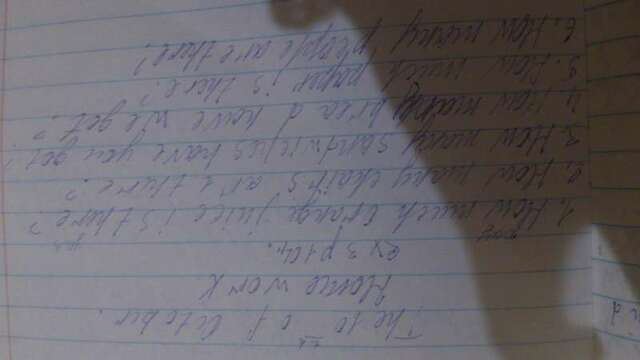 The 10th of October.
Home work
ex 3 p 104.
1. How much orange juice is there?
2. How many chairs are there?
3. How many sandwiches have you got?
4. How bread have we got?
5. How much paper is there?
6. How many people are there?